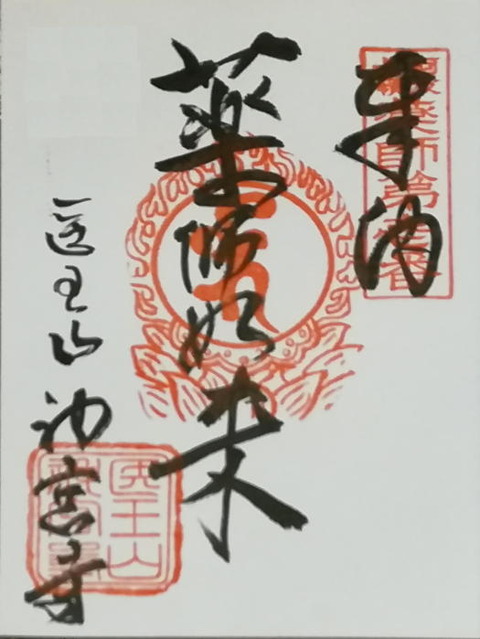 奉納
薬師如来
医王山神宮寺
医王山